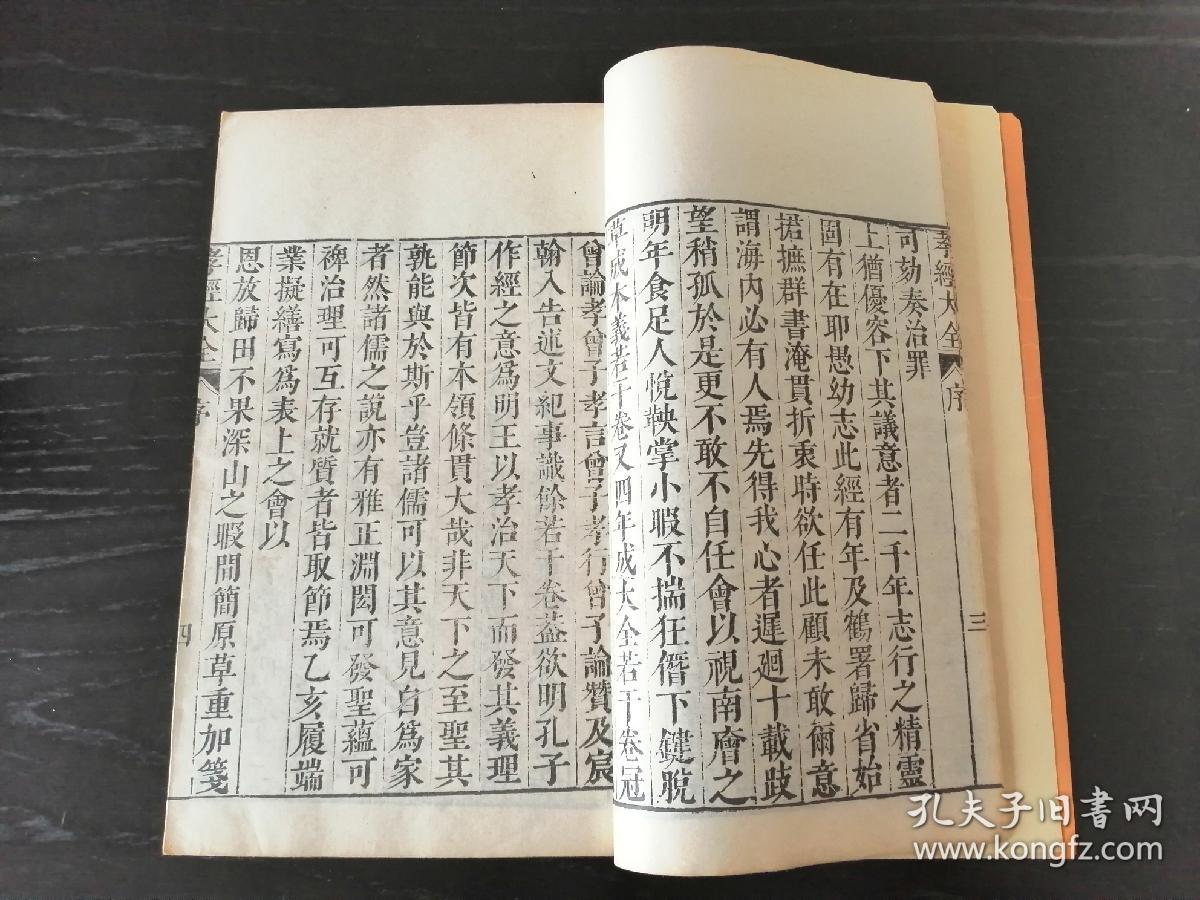 孝經大全 序 三
可劾奏治罪
上猶優容下其議意者二千年志行之精靈
固有在耶愚幼志此經有年及鶴署歸省始
搭摭群書淹貫折衷時欲任此顧未敢爾意
謂海内必有人焉先得我心者遲廻十載歧
望稍孤於是更不敢不自任會以視南廥之
明年食足人悅鞅掌小暇不揣狂僭下鍵脫
草成本義若干卷又四年成大全若干卷冠
曾論孝曾子孝言曾子孝行曾子論贊及宸
翰入告述文紀事識餘若干卷葢欲明孔子
作經之意爲明王以孝治天下而發其義理
節次皆有本領條貫大哉非天下之至聖其
孰能與於斯乎豈諸儒可以其意見自爲家
者然諸儒之說亦有雅正淵閎可發聖蘊可
裨治理可互存就質者皆取節焉乙亥履端
業擬繕寫爲表上之會以
恩放歸田不果深山之暇間簡原草重加箋
孝經大全 序 四
孔夫子旧书网
www.kongfz.com